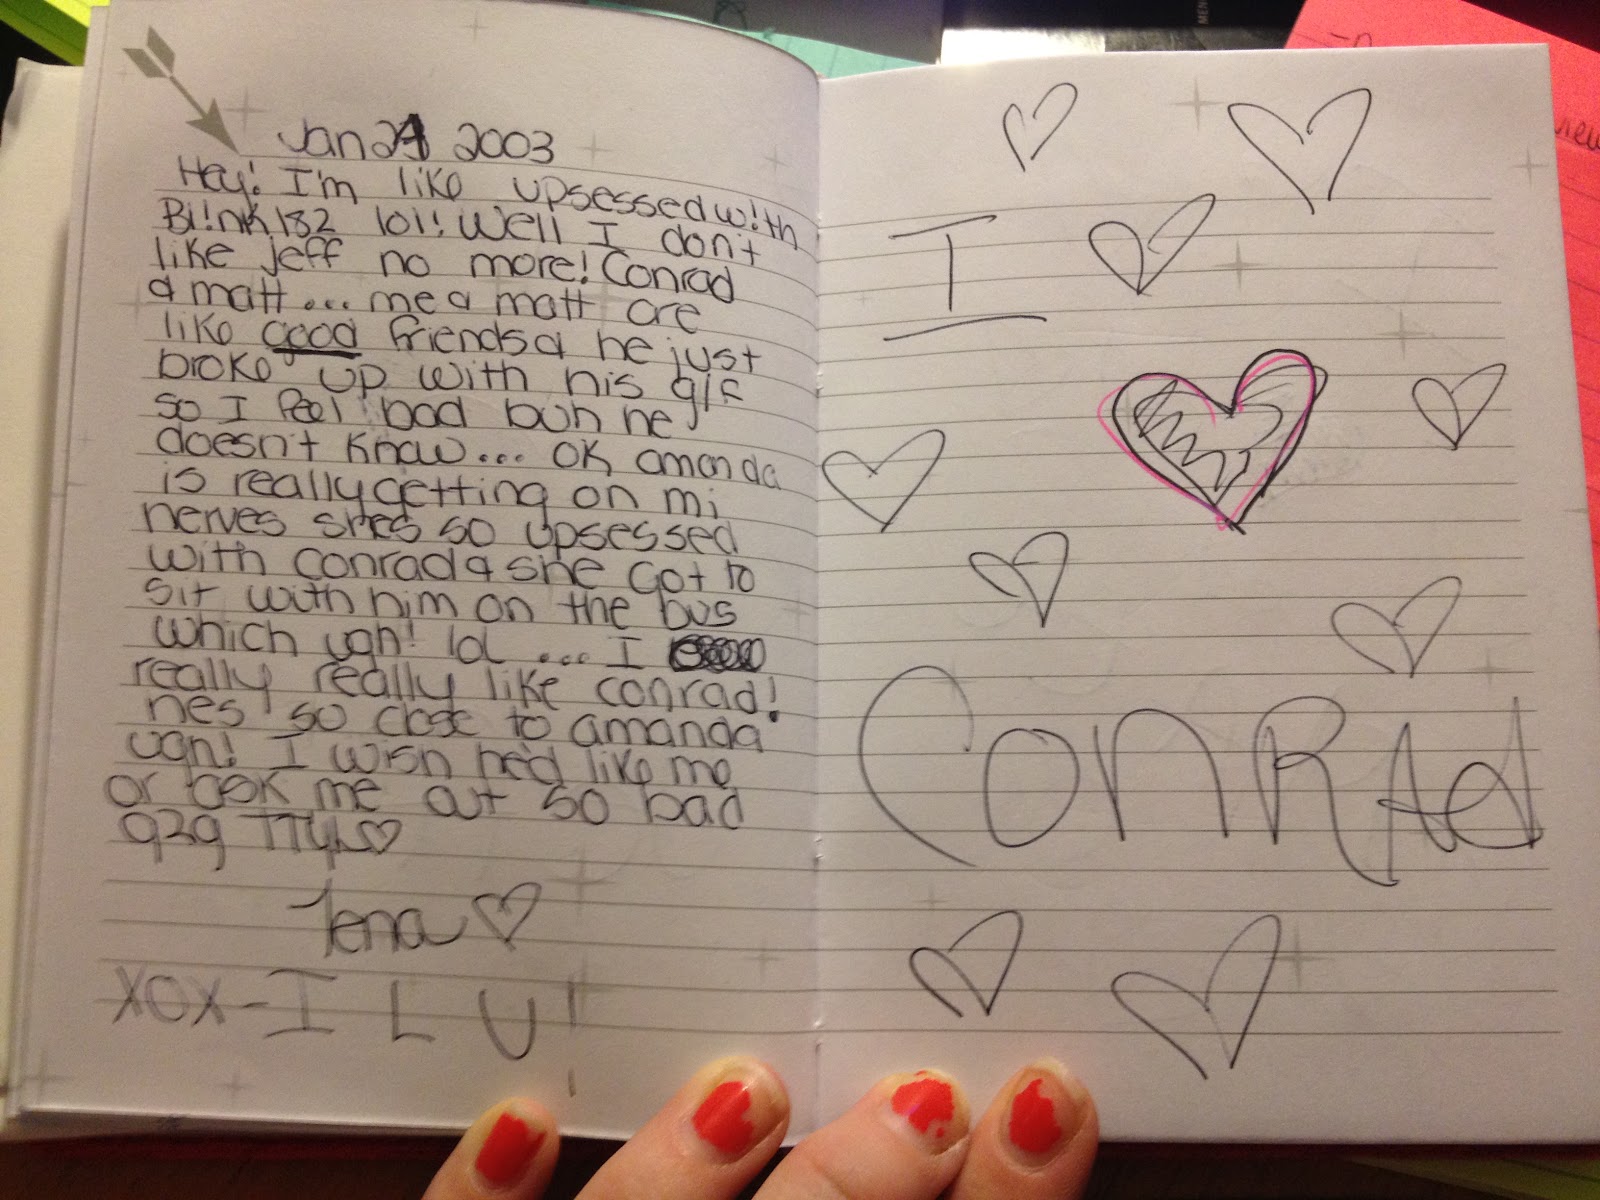 Jan 24 2003
Hey! I'm like upsessed w!th
Bl!nk 182 lol! Well I don't
like jeff no more! Conrad
& matt... me & matt are
like good friends & he just
broke up with his g/f
so I feel bad buh he
doesn't know... ok amanda
is really getting on mi
nerves she's so upsessed
with conrad & she got to
sit with him on the bus
which ugh! lol ... I
really really like conrad!
hes so close to amanda
ugh! I wish he'd like me
or ask me out so bad
g2g TTYL ♡
Tena ♡
XOX - I L U!
I
CONRAd
MEN
view